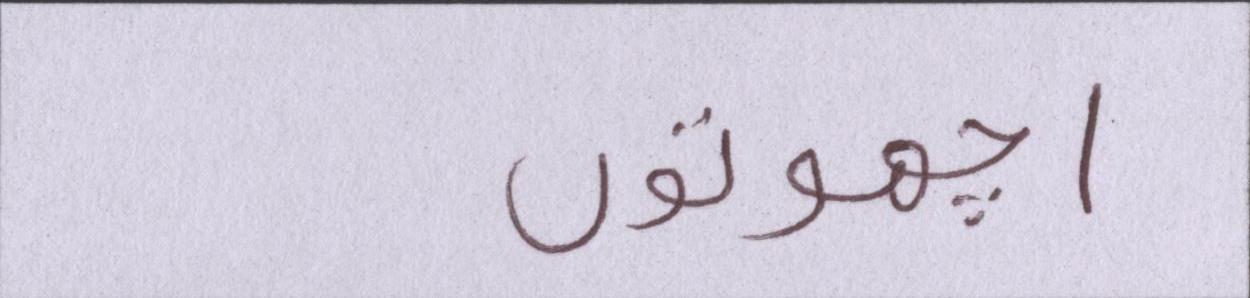 اچھوتوں